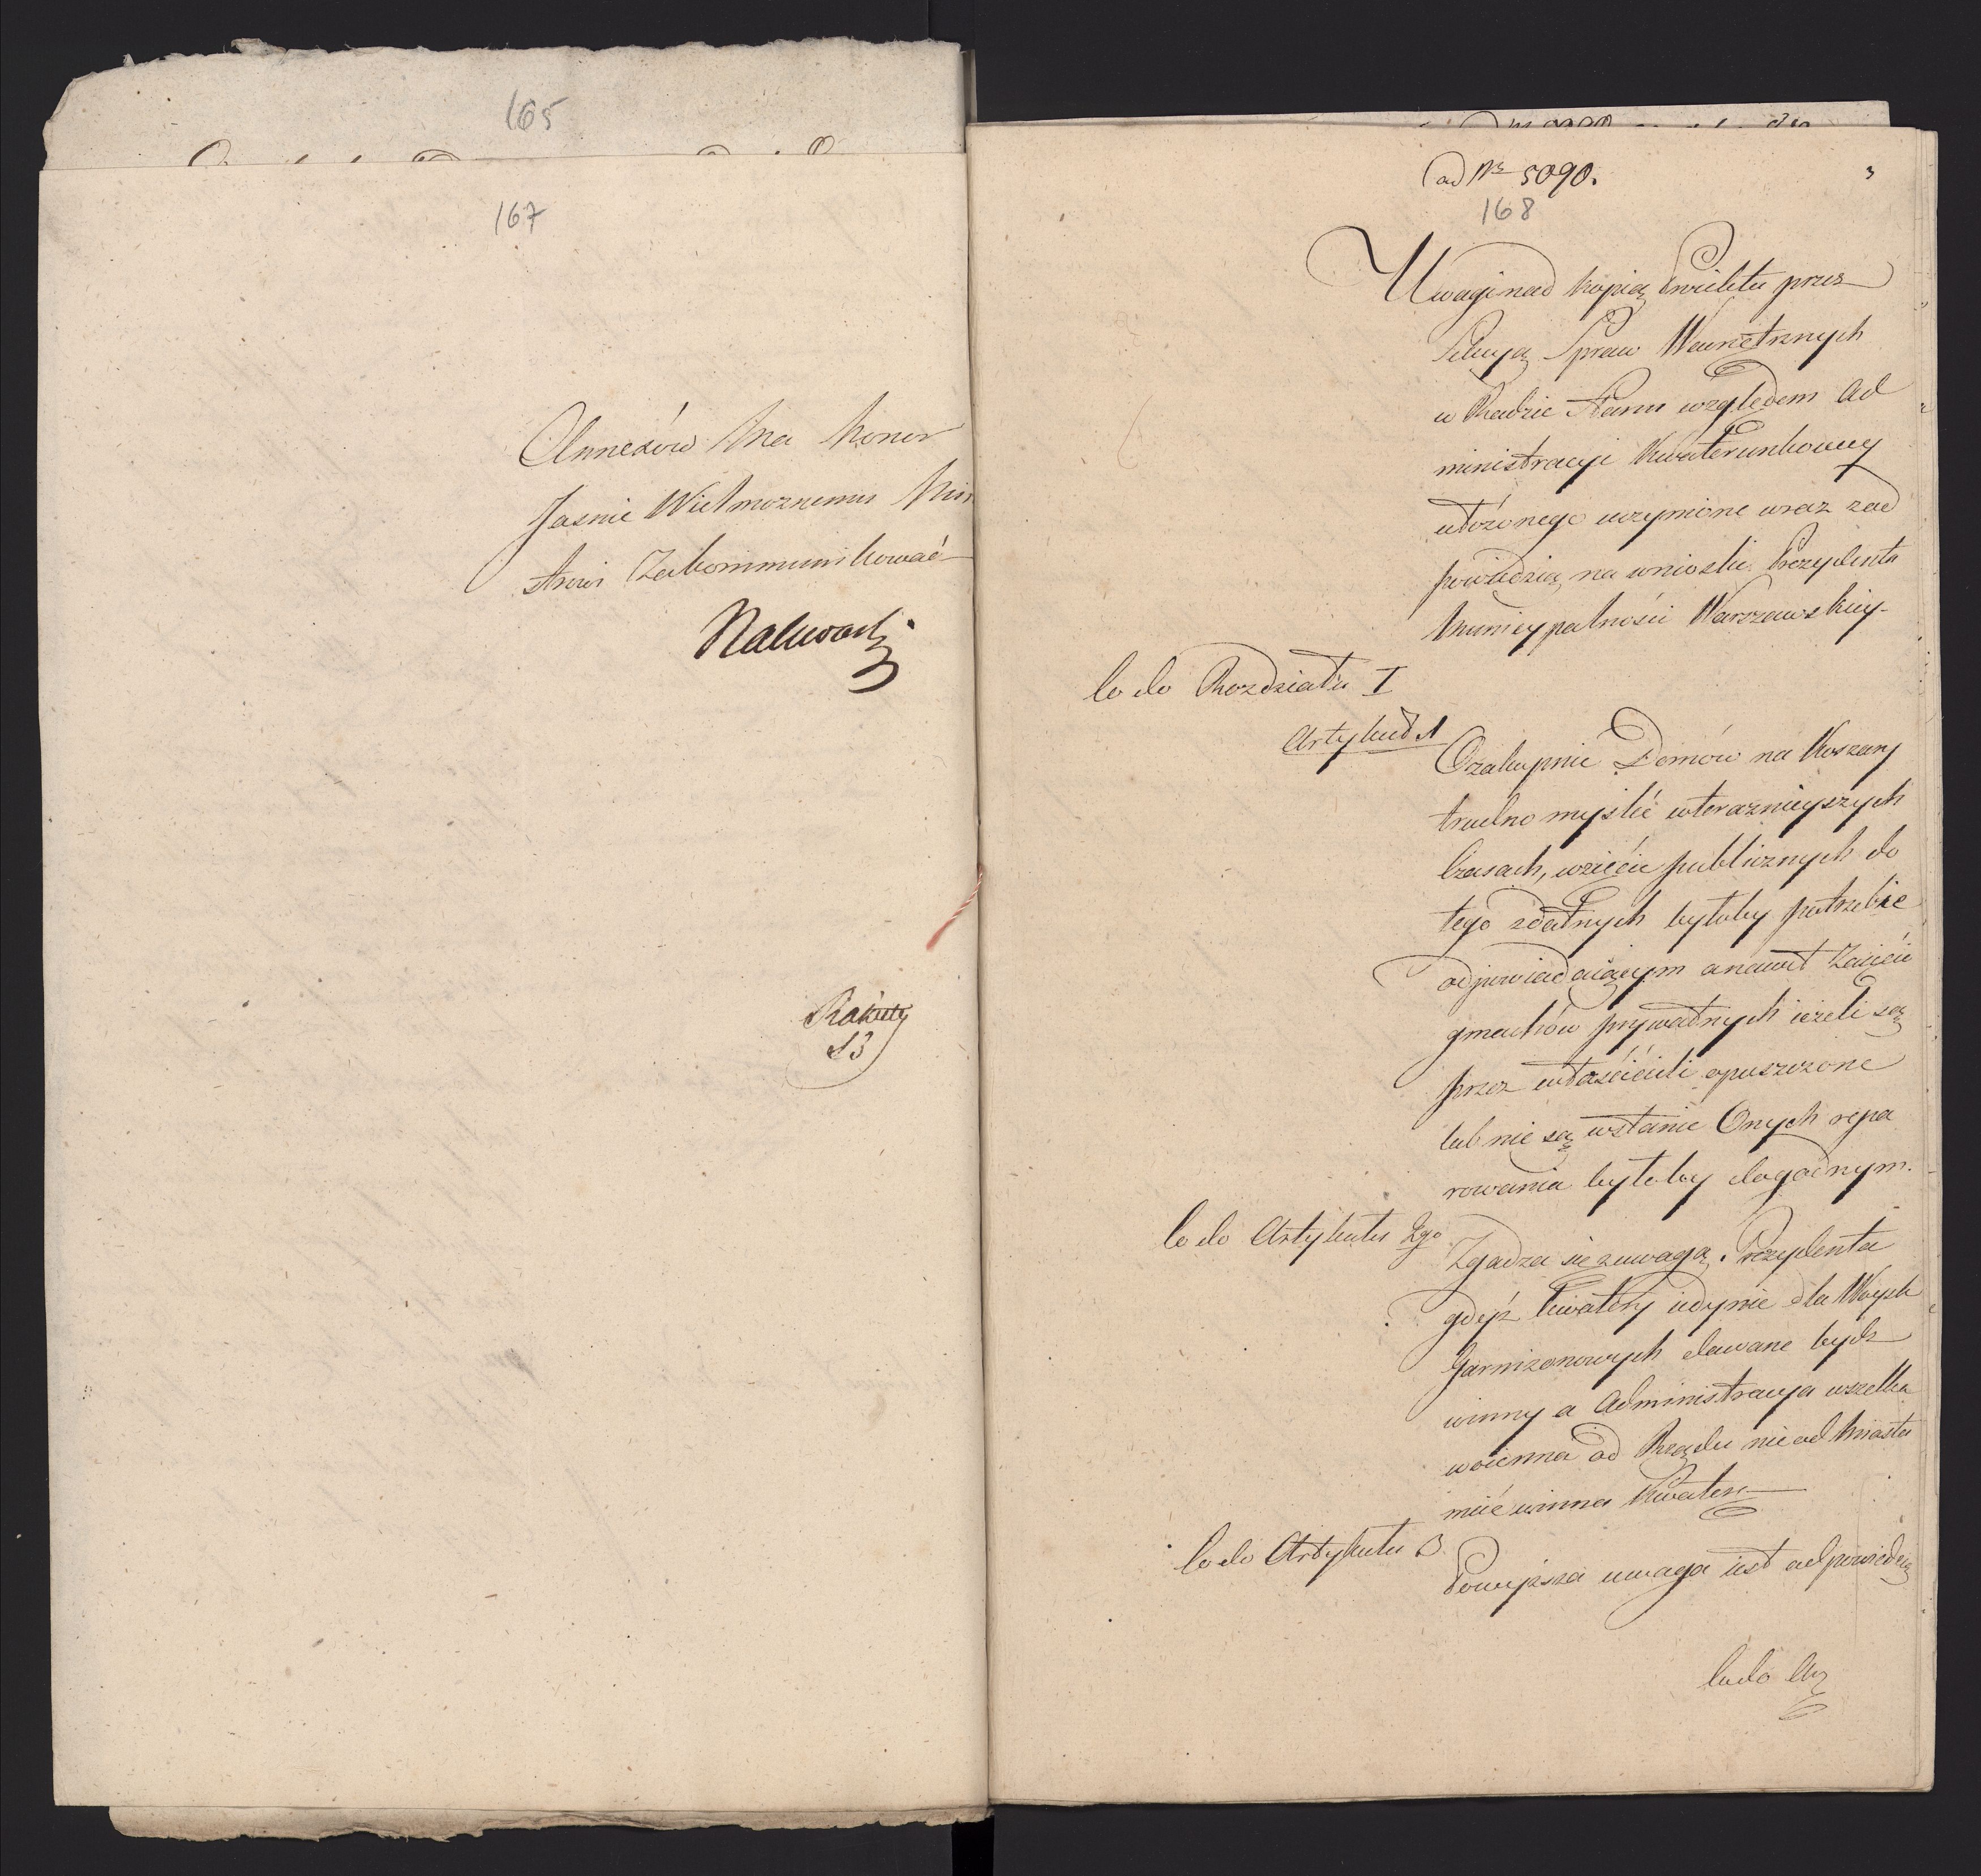 165
167
Annexów ma honor
Jaśnie Wielmożnemu Min
strowi Zakommunikować
Nakwaski
Rakiety
13
ad Nr 5090.
3
168
Uwagi nad kopią Projektu przez
Sekcyą Spraw Wewnętrznych
w Radzie Stanu względem Ad
ministracyi Kwaterunkowey
ułożonego uczynione wraz z od
powiedzią na wnioski Prezydenta
Municypalności Warszawskiey
Co do Rozdziału I
Artykuł 1
O zakupnie Domów na Koszary
trudno myślić w teraznieyszych
Czasach, wzięcie publicznych do
tego zdatnych byłoby potrzebie
odpowiadaiącym a nawet Zaięcie
gmachów prywatnych ieżeli są
przez właścicieli opuszczone
lub nie są w stanie Onych repa
rowania byłoby dogodnym.
Co do Artykułu 2go
Zgadza się z uwagą Prezydenta
gdyż kwatery iedynie dla Woysk
Garnizonowych dawane bydź
winny a Administracya wszelka
woienna od Rządu nie od Miasta
mieć winna Kwaterę
Co do Artykułu 3
Powyższa uwaga iest odpowiedzią
Co do Ar